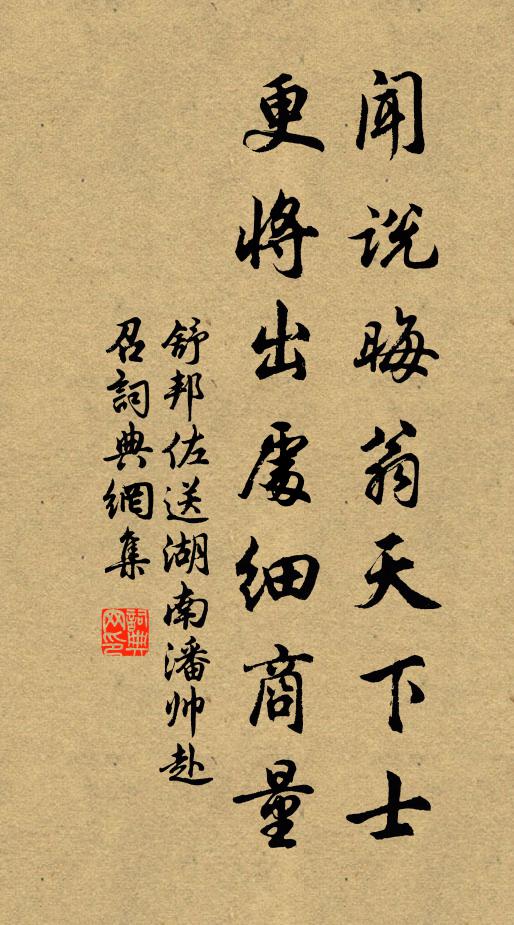 闻说晦翁天下士
更将出處细商量
舒邦佐送湖南潘帅赴
召詞典網集
詞典网印